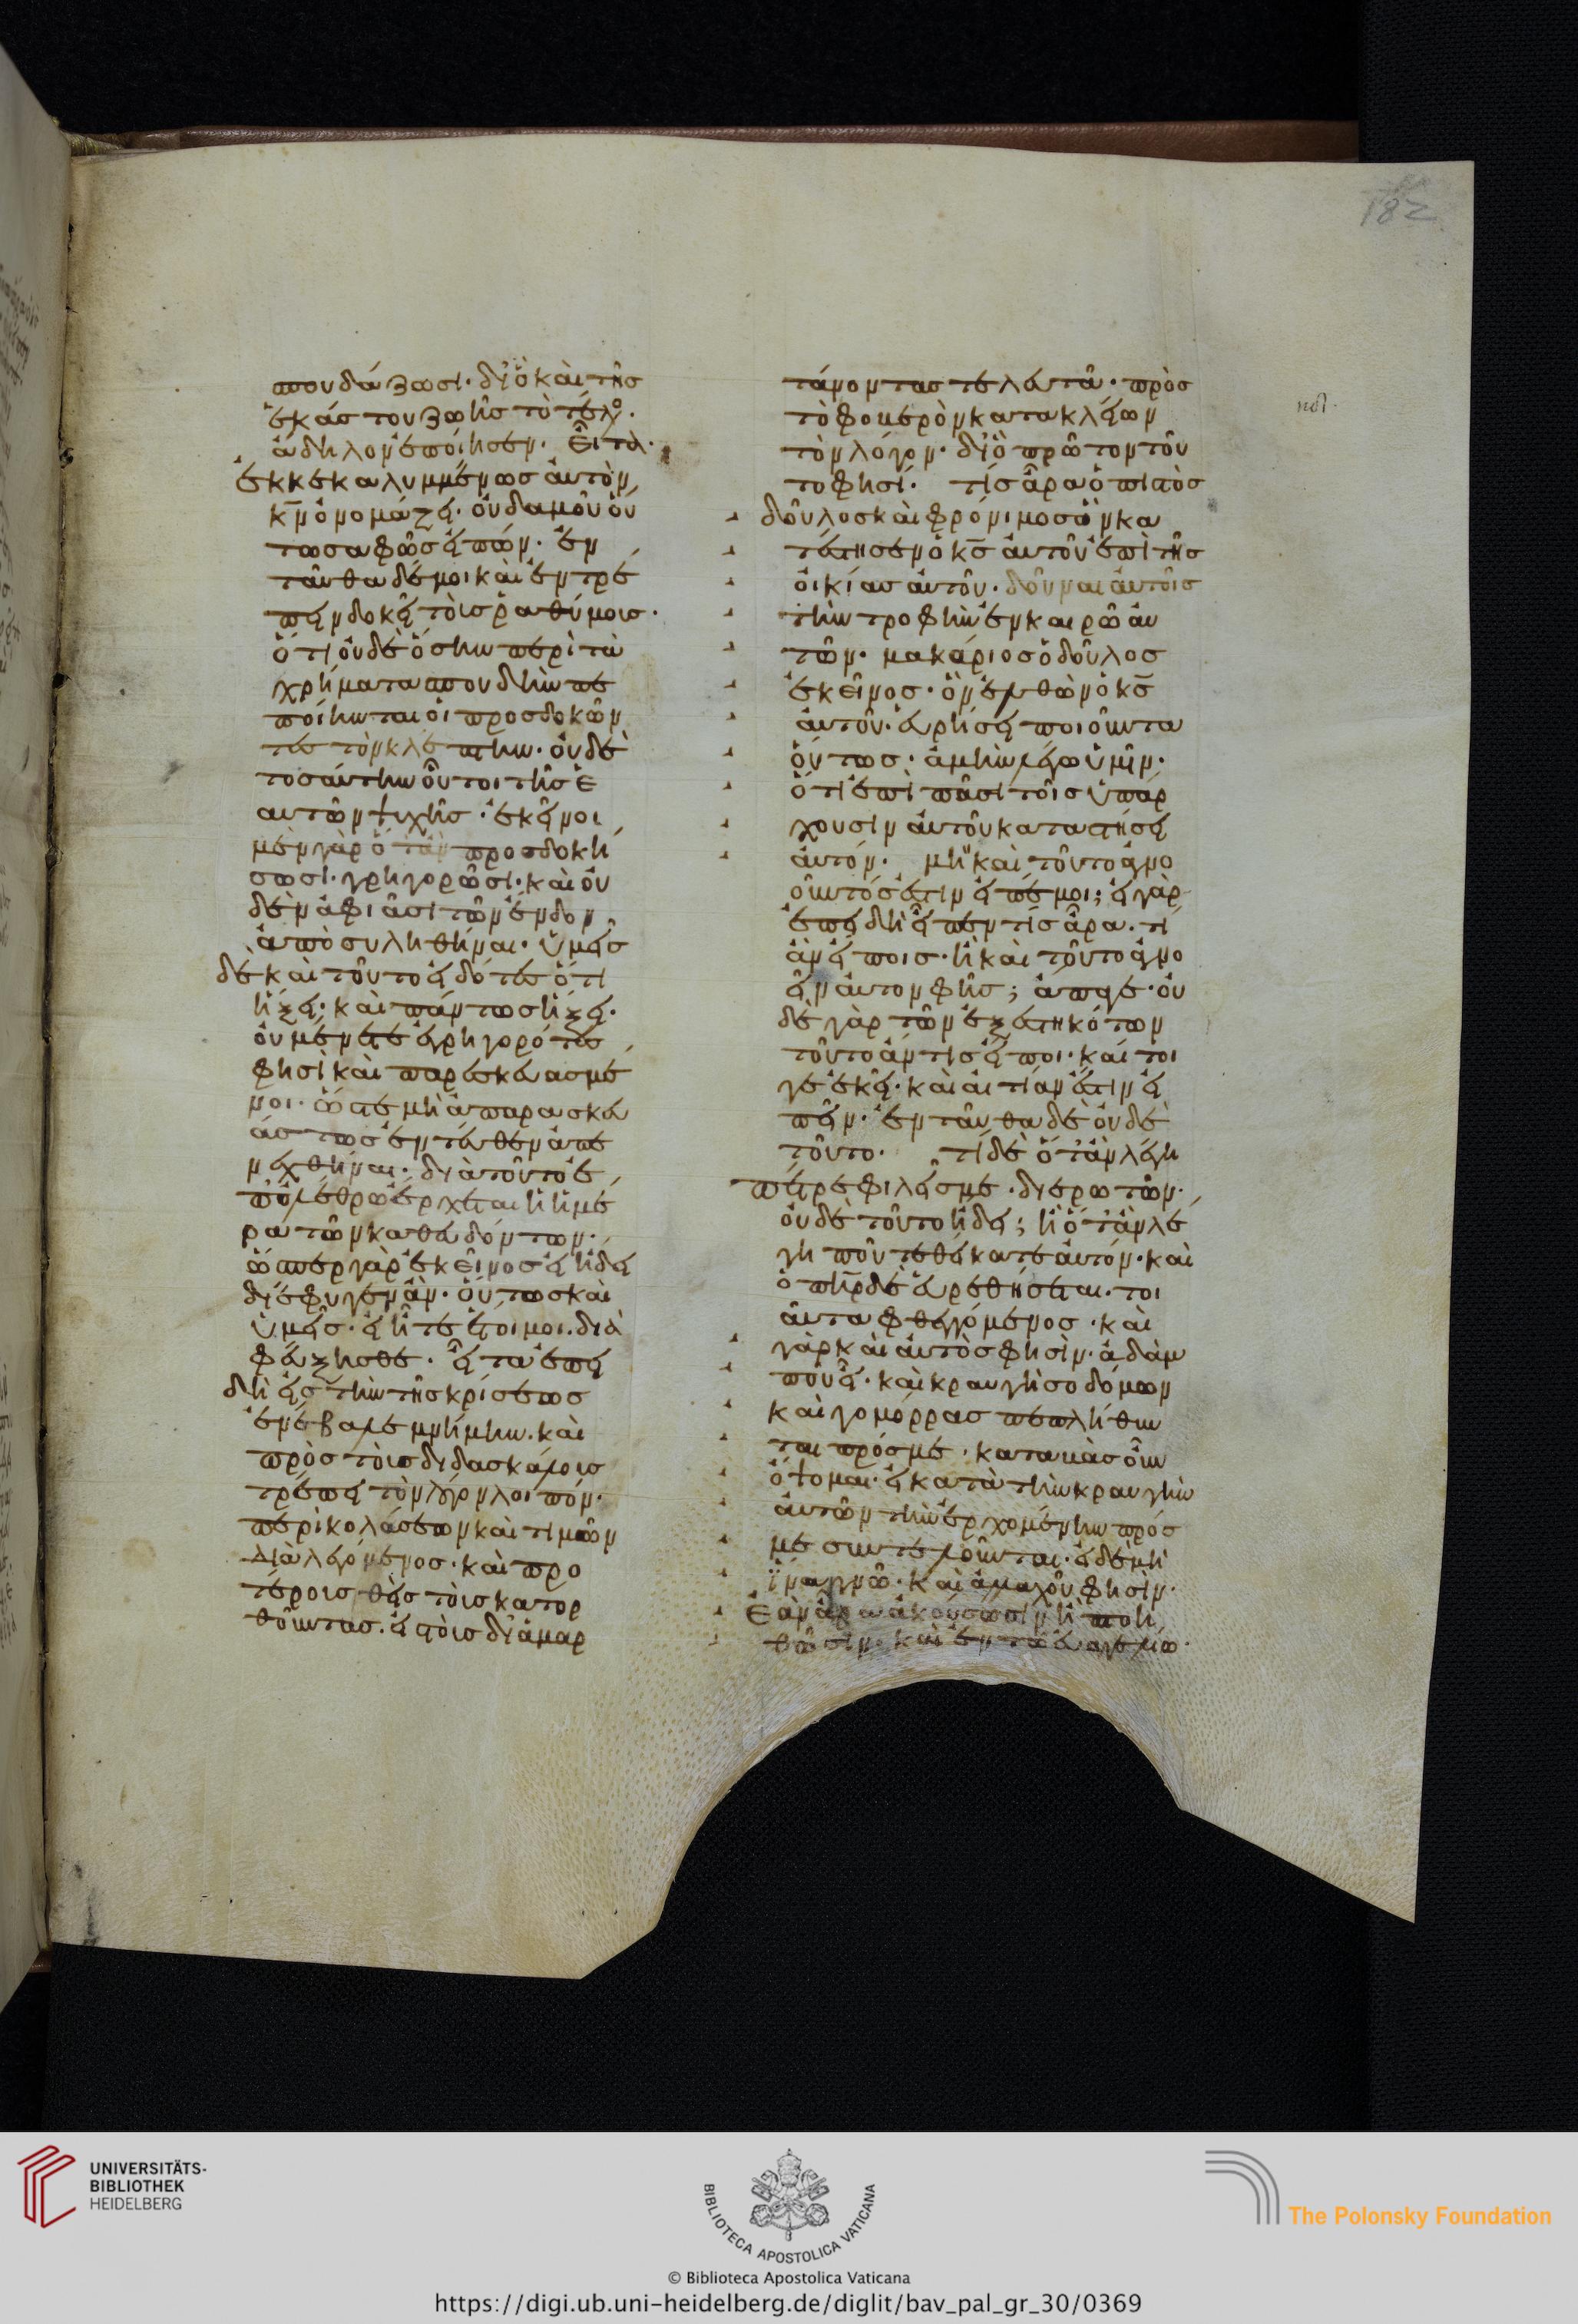 182
σπουδάζωσι. διὸ καὶ τῆς
ἑκάστου ζωῆς τὸ τέλο
ἄδηλον ἐποίησεν. Εἶτα
ἐκκεκαλυμμένως αὐτὸν
κν ὀνομάζει. οὐδαμοῦ οὕ
τω σαφῶς εἰπών. ἐν
ταῦθα δέ μοι καὶ ἐντρέ
πειν δοκεῖ τοὺς ῥαθύμους.
ὅτι οὐδὲ ὅσην περὶ τὰ
χρήματα σπουδὴν πε
ποίηνται οἱ προσδοκῶν
τες τὸν κλέπτην. οὐδὲ
τοσαύτην οὗτοι τῆς ἑ
αυτῶν ψυχῆς. ἐκεῖνοι
μὲν γὰρ ὅταν προσδοκή
σωσι. γρηγορῶσι. καὶ οὐ
δὲν ἀφιᾶσι τῶν ἔνδον
ἀποσυληθῆναι. ὑμεῖς
δὲ καὶ τοῦτο εἰδότες ὅτι
ἥξει. καὶ πάντως ἥξει.
οὐ μένετε ἐγρηγορότες
φησὶ καὶ παρεσκευασμέ
νοι. ὥστε μὴ ἀπαρασκευ
άστως ἐντεῦθεν ἀπε
νεχθῆναι. διὰ τοῦτο ἐ
π' ὀλέθρῳ ἔρχεται ἡ ἡμέ
ρα τῶν καθευδόντων.
ὥσπερ γὰρ ἐκεῖνος εἰ ᾔδει
διέφυγεν ἄν. οὕτως καὶ
ὑμεῖς. εἰ ἦτε ἕτοιμοι. δια
φεύξησθε. εἶτα ἐπει
δὴ εἰς τὴν τῆς κρίσεως
ἐνέβαλε μνήμην. καὶ
πρὸς τοὺς διδασκάλους
τρέπει τὸν λόγον λοιπόν.
περὶ κολάσεων καὶ τιμῶν
διαλεγόμενος. καὶ προ
τέρους θεὶς τοὺς κατορ
θοῦντας. εἰς τοὺς διαμαρ
τάνοντας τελευτᾷ. πρὸς
τὸ φοβερὸν κατακλείων
τὸν λόγον. διὸ πρῶτον τοῦ
το φησί. τίς ἄρα ὁ πιστὸς
δοῦλος καὶ φρόνιμος ὃν κα
τέστησεν ὁ κς αὐτοῦ ἐπὶ τῆς
οἰκίας αὐτοῦ. δοῦναι αὐτοῖς
τὴν τροφὴν ἐν καιρῷ αὐ
τῶν. μακάριος ὁ δοῦλος
ἐκεῖνος. ὃν ἐλθὼν ὁ κς
αὐτοῦ. εὑρήσει ποιοῦντα
οὕτως. ἀμὴν λέγω ὑμῖν.
ὅτι ἐπὶ πᾶσι τοῖς ὑπάρ
χουσιν αὐτοῦ καταστήσει
αὐτόν. μὴ καὶ τοῦτο ἀγνο
οῦντός ἐστιν εἰπέ μοι; εἰ γὰρ
ἐπειδὴ εἶπεν τίς ἄρα. τί
ἂν εἴποις. ἢ καὶ τοῦτο ἀγνο
εῖν αὐτὸν φῂς; ἄπαγε. οὐ
δὲ γὰρ τῶν ἐξεστηκότων
τοῦτο ἄν τις εἴποι. καίτοι
γε ἐκεῖ. καὶ αἰτίαν ἔστιν εἰ
πεῖν. ἐνταῦθα δὲ οὐδὲ
τοῦτο. τί δὲ ὅταν λέγῃ
πέτρε φιλεῖς με. διερωτῶν.
οὐδὲ τοῦτο ᾔδει; ἢ ὅταν λέ
γῃ ποῦ τεθείκατε αὐτόν. καὶ
ὁ πηρ δὲ εὑρεθήσεται. τοι
αῦτα φθεγγόμενος. καὶ
γὰρ καὶ αὐτὸς φησίν. ἀδὰμ
ποῦ εἶ. καὶ κραυγὴ σοδόμων
καὶ γομόρρας πεπλήθυν
ται πρός με. καταβὰς οὖν
ὄψομαι. εἰ κατὰ τὴν κραυγὴν
αὐτῶν τὴν ἐρχομένην πρός
με συντελοῦνται. εἰ δὲ μὴ
ἵνα γνῶ. καὶ ἀλλαχοῦ φησίν.
Ἐὰν ἄρα ἀκούσωσιν ἢ πτοη
θῶσιν. καὶ ἐν τῷ εὐαγγελίῳ.
UNIVERSITÄTS-
BIBLIOTHEK
HEIDELBERG
BIBLIOTECA APOSTOLICA VATICANA
© Biblioteca Apostolica Vaticana
The Polonsky Foundation
https://digi.ub.uni-heidelberg.de/diglit/bav_pal_gr_30/0369